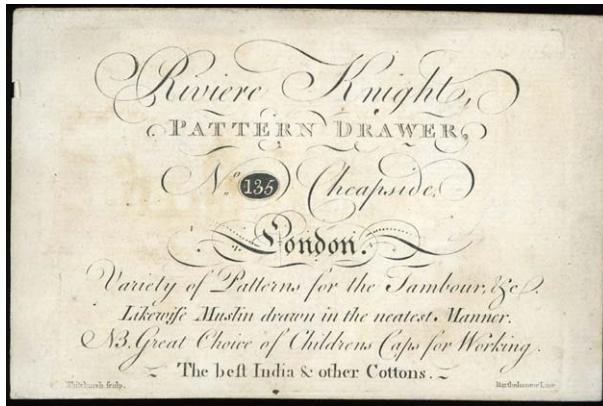 Riviere Knight,
PATTERN DRAWER,
No. 135 Cheapside,
London.
Variety of Patterns for the Tambour, &c.
Likewiſe Muslin drawn in the neatest Manner.
NB. Great Choice of Childrens Caps for Working.
The beſt India & other Cottons.
Whitchurch ſculp. Bartholomew Lane